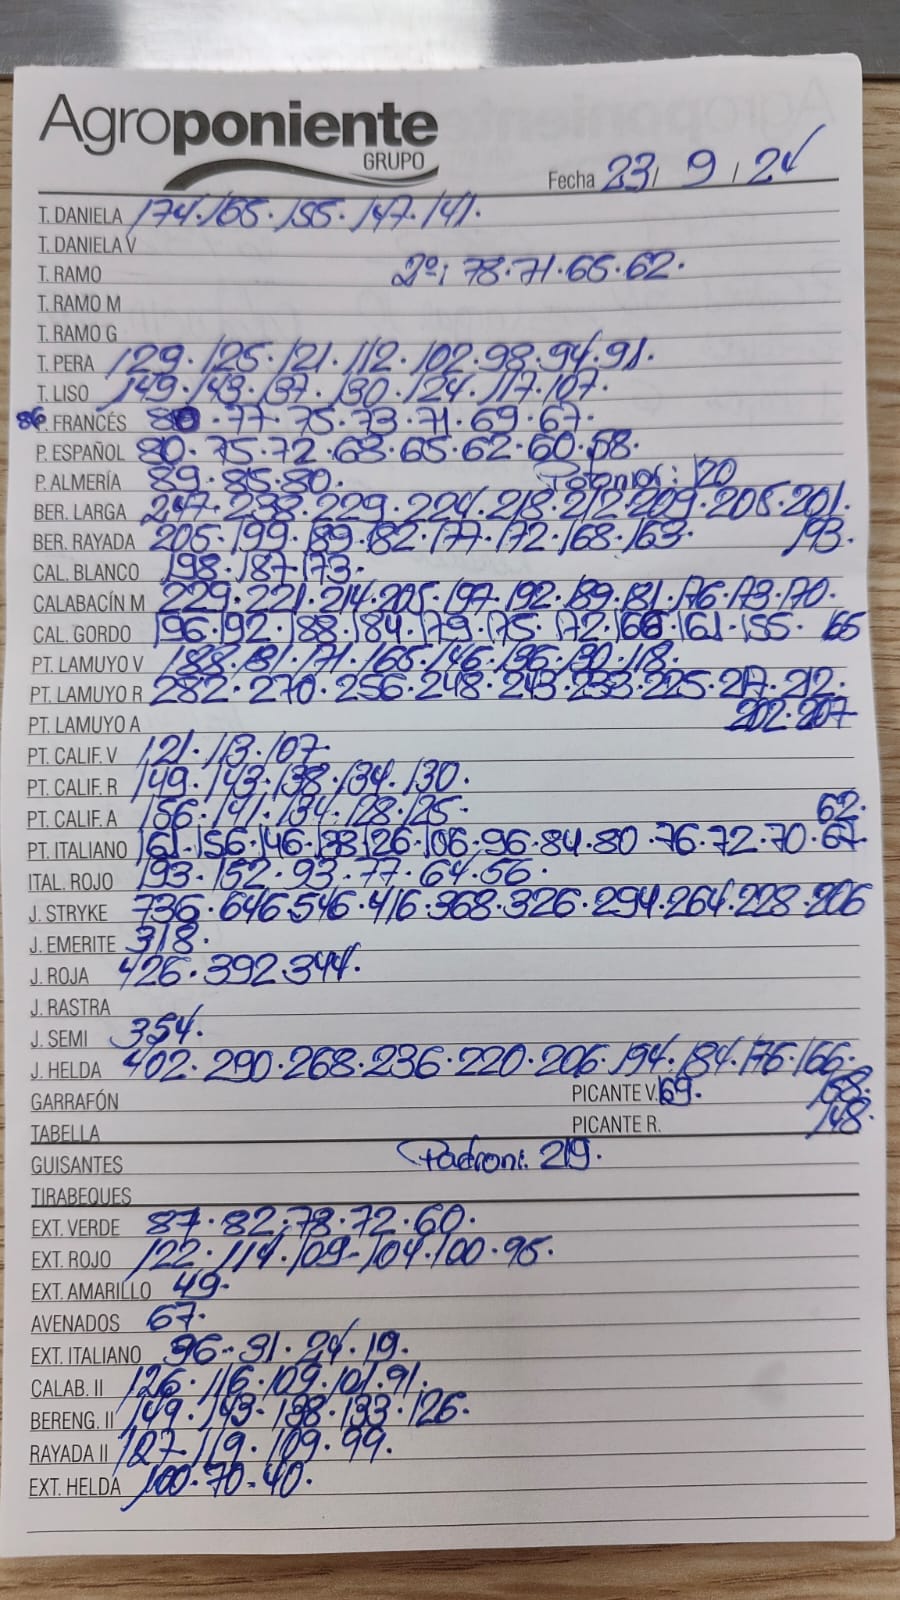 Agroponiente
GRUPO
Fecha 23/ 9 / 24
T. DANIELA 174·165·155·147·141·
T. DANIELA V
T. RAMO 2º: 78·71·65·62·
T. RAMO M
T. RAMO G
T. PERA 129·125·121·112·102·98·94·91·
T. LISO 149·143·137·130·124·117·107·
86 P. FRANCÉS 80·77·75·73·71·69·67·
P. ESPAÑOL 80·75·72·68·65·62·60·58·
P. ALMERÍA 89·85·80· 120
BER. LARGA 247·238·229·224·218·212·209·205·201·
BER. RAYADA 205·199·189·182·177·172·168·163· 193·
CAL. BLANCO 198·187·173·
CALABACÍN M 229·221·214·205·197·192·189·181·176·173·170·
CAL. GORDO 196·192·188·184·179·175·172·166·161·155· 165
PT. LAMUYO V 188·181·171·165·146·196·190·118·
PT. LAMUYO R 282·270·256·248·243·233·225·217·212·
PT. LAMUYO A 202·207
PT. CALIF. V 121·113·107·
PT. CALIF. R 149·143·138·134·130·
PT. CALIF. A 156·141·134·128·125· 62·
PT. ITALIANO 161·156·146·138·126·106·96·84·80·76·72·70·67
ITAL. ROJO 193·152·93·77·64·56·
J. STRYKE 736·646·546·416·368·326·294·264·228·206
J. EMERITE 318·
J. ROJA 426·392·344·
J. RASTRA
J. SEMI 354·
J. HELDA 402·290·268·236·220·206·194·184·176·166·
GARRAFÓN PICANTE V. 169· 158·
TABELLA PICANTE R. 148·
GUISANTES Padron: 219·
TIRABEQUES
EXT. VERDE 87·82·78·72·60·
EXT. ROJO 122·114·109·104·100·95·
EXT. AMARILLO 49·
AVENADOS 67·
EXT. ITALIANO 36·31·24·19·
CALAB. II 126·116·109·101·91·
BERENG. II 149·143·138·133·126·
RAYADA II 127·119·109·99·
EXT. HELDA 100·70·40·